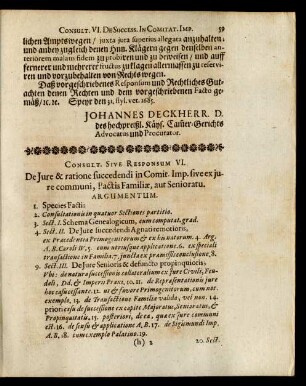 CONSULT. VI. DE SUCCESS. IN COMITAT. IMP. 59
lichen Amptswegen / juxta jura superius allegata anzuhalten /
und anbey zugleich denen Hnn. Klägern gegen denselben an-
teriorem malam fidem zu probiren und zu beweisen / und auff
fernerere und mehrerer fructus zuklagen allermassen zu reservi-
ren und vorzubehalten von Rechts wegen.
Daß vorgeschriebenes Responsum und Rechtliches Gut-
achten denen Rechten und dem vorgeschriebenen Facto ge-
mäß / ic. ic. Speyr den 31. styl. vet. 1685.
JOHANNES DECKHERR. D.
des hochpreißl. Käys. Cam̃er-Gerichts
Advocatus und Procurator.
CONSULT. SIVE RESPONSUM VI.
De Jure & ratione succedendi in Comit. Imp. sive ex ju-
re communi, Pactis Familiæ, aut Senioratu.
ARGUMENTUM.
1. Species Facti:
2. Consultationis in quatuor Sectiones partitio.
3. Sect. I. Schema Genealogicum, cum comput. grad.
4. Sect. II. De Jure succedendi Agnati remotioris,
ex Præcedentia Primogeniturem & ex hujus natura. 4. Arg.
A, B. Caroli IV. 5. cum neriusque applicatione. 6. ex speciali
transactione in Familia 7. junctâ ex præmissis conclusione, 8.
9. Sect. III. De Jure Senioris & defuncto propinquioris.
Ubi: de natura successionis collateralium ex jure Civili, Feu-
dali, D4. & Imperii Franc. 10. 11. de Repræsentationis jure
hoc casu cessante. 12. ut & favore Primogeniturem, cum ratʼ
exemplo, 13. de Transactione Familiæ valida, vel non. 14.
priori casu de successione ex capite Majoratus, Senioratus, &
Propinquitatis. 15. posteriori, de ea, quæ ex jure communi
est. 16. de sensu & applicatione A. B. 17. de Sigismundi Imp.
A. B. 18. cum exemplo Palatino. 19.
(h) 2 20. Sect.